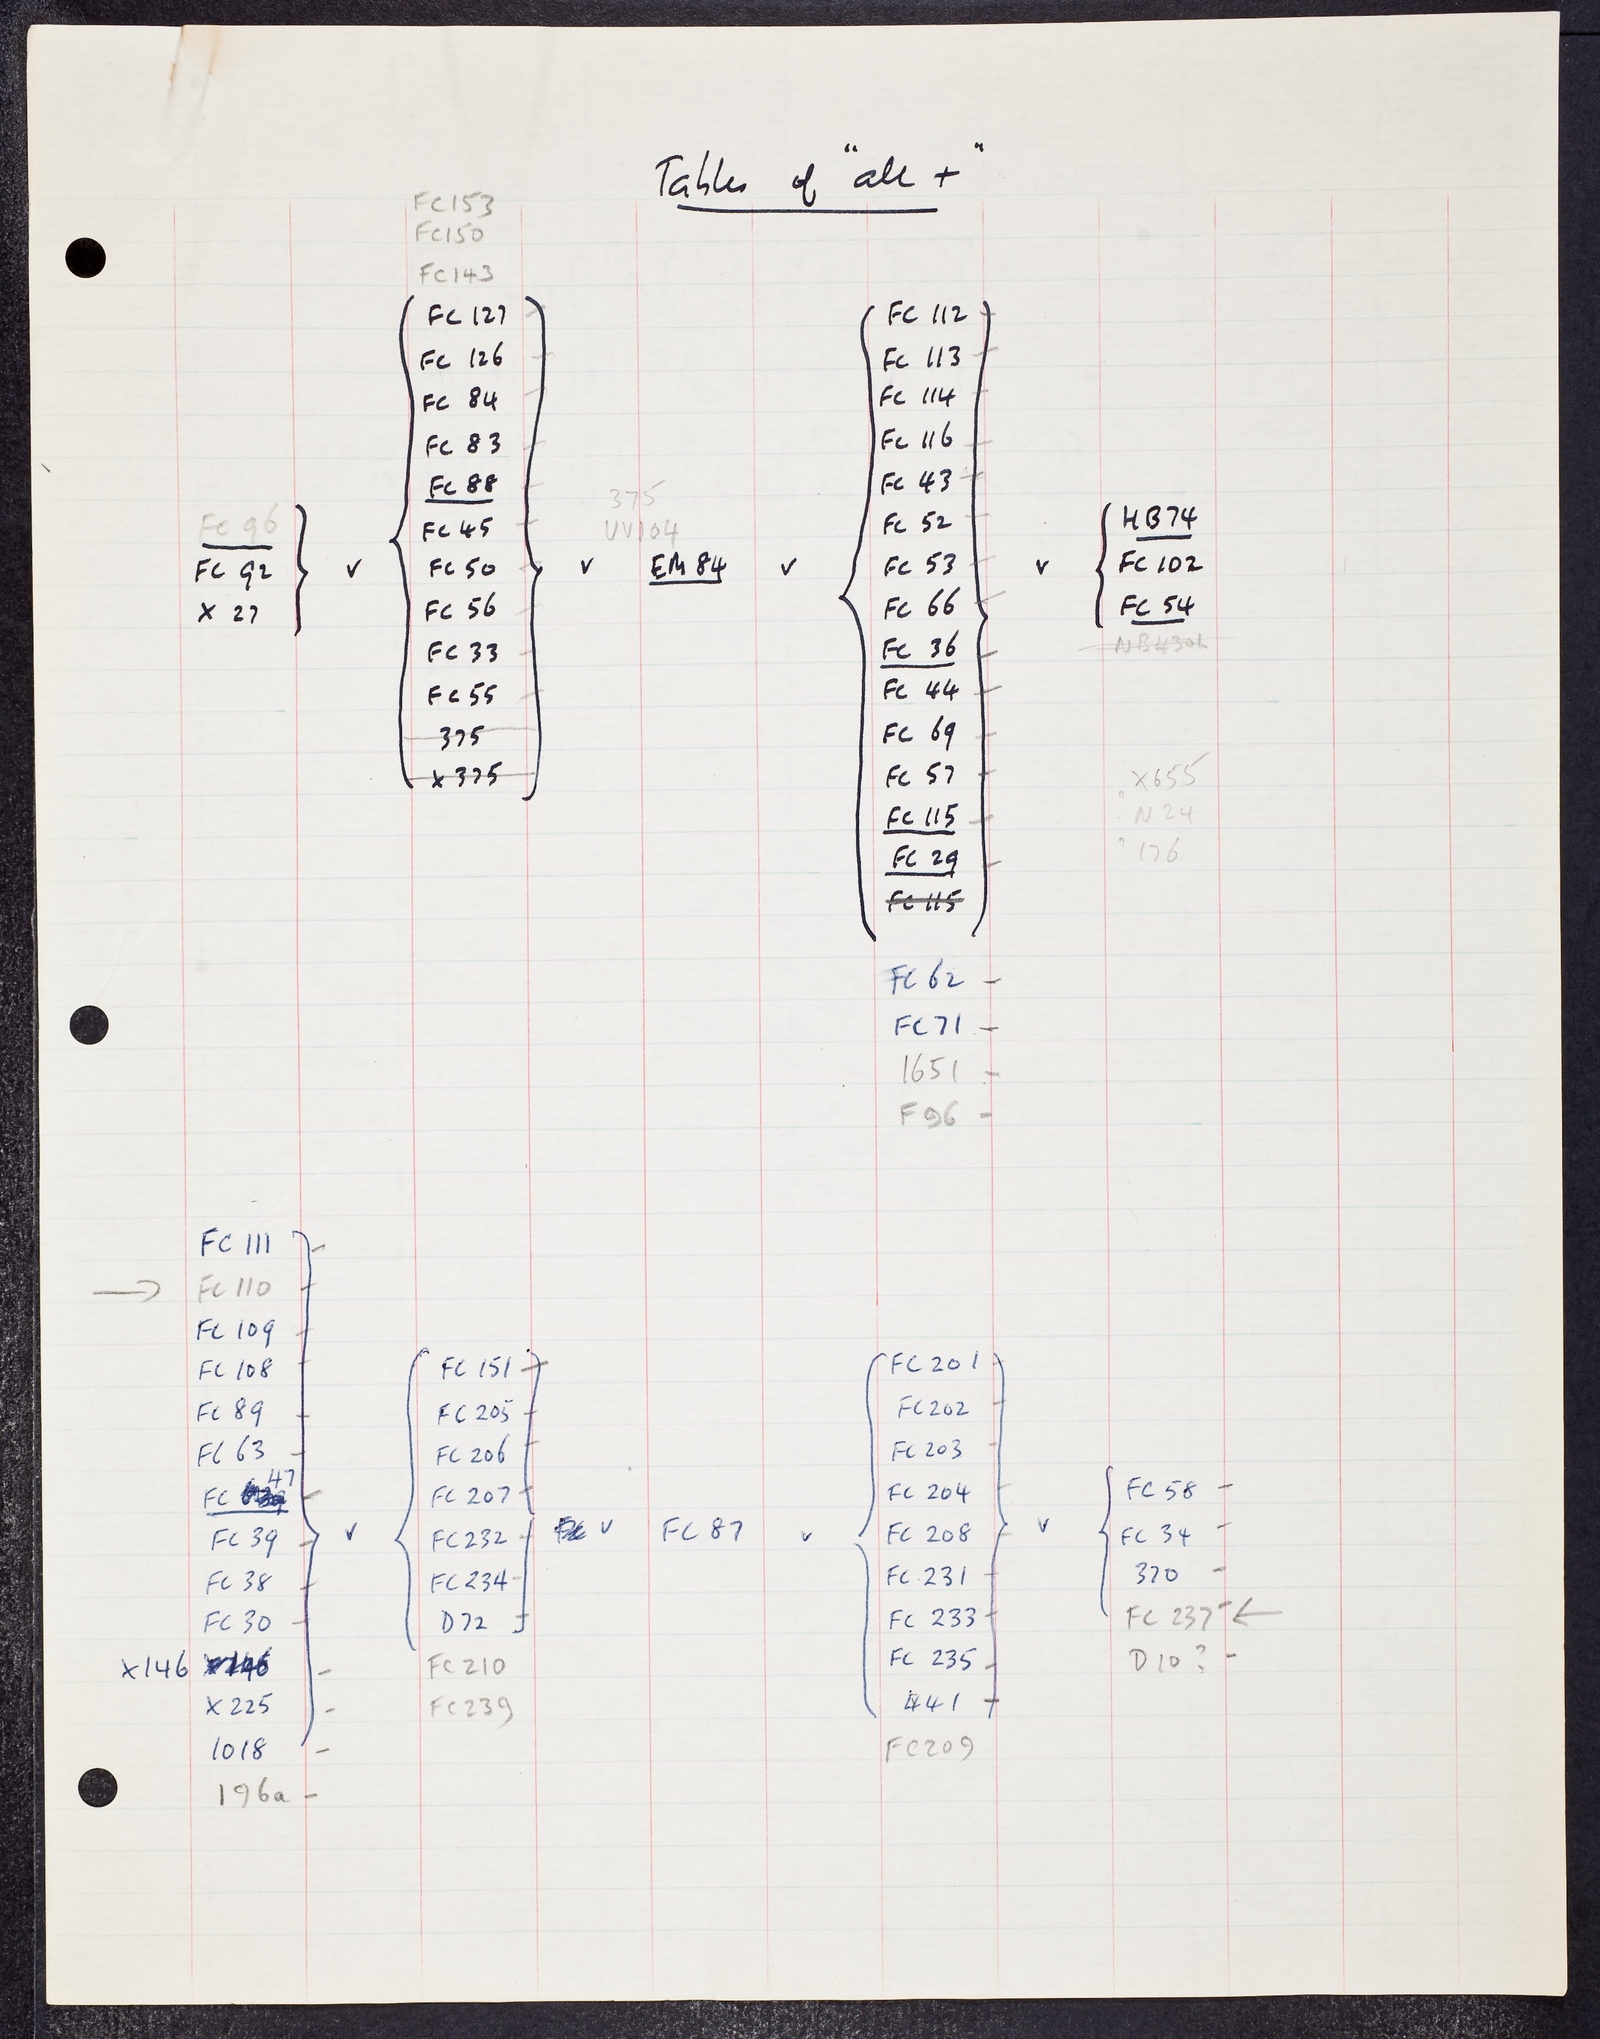 Tables of "all +"
FC153
FC150
FC143
FC 127
FC 126
FC 84
FC 83
FC 88
FC 45
FC 50
FC 56
FC 33
FC 55
375
X 375
FC 96
FC 92
X 27
v
v
375
UV104
EM 84
v
FC 112
FC 113
FC 114
FC 116
FC 43
FC 52
FC 53
FC 66
FC 36
FC 44
FC 69
FC 57
FC 115
FC 29
FC 115
FC 62
FC 71
1651
F 96
v
HB74
FC 102
FC 54
X655
? N 24
? 176
FC 111
→ FC 110
FC 109
FC 108
FC 89
FC 63
FC 47
FC 39
FC 38
FC 30
X146 X146
X 225
1018
196a
v
FC 151
FC 205
FC 206
FC 207
FC 232
FC 234
D72
FC210
FC239
v
FC 87
v
FC 201
FC202
FC 203
FC 204
FC 208
FC 231
FC 233
FC 235
441
FC209
v
FC 58
FC 34
370
FC 237 ←
D10?